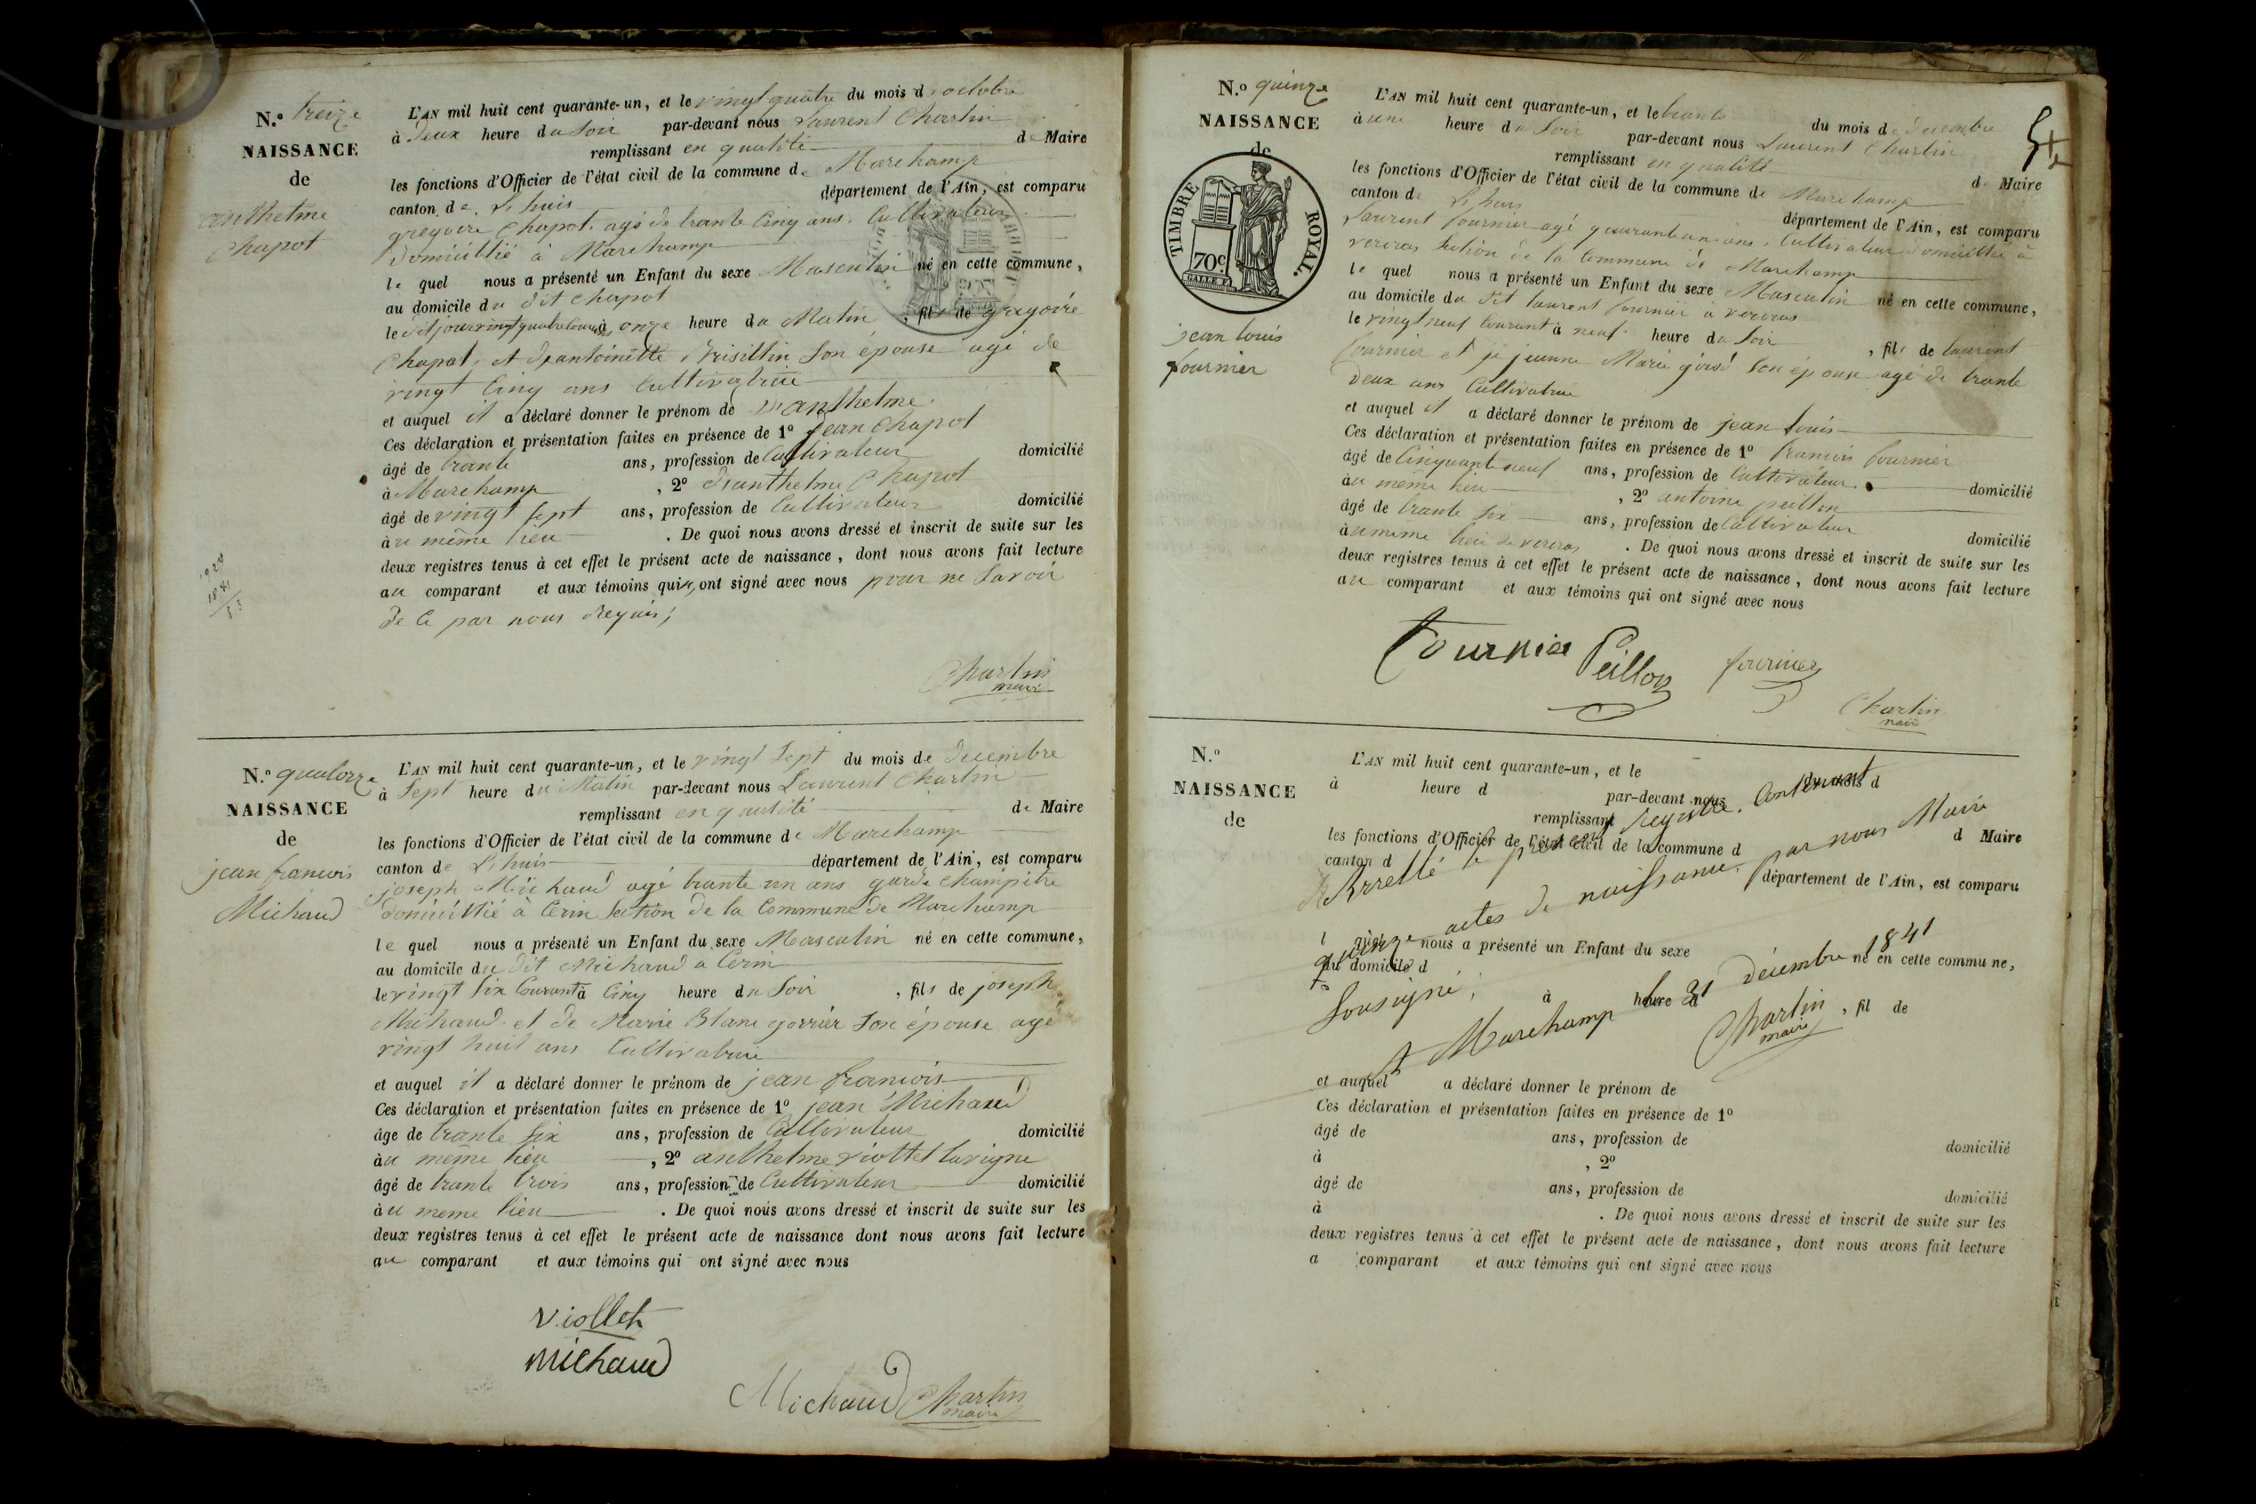 N.º treize
NAISSANCE
de
anthelme
Chapot
L'AN mil huit cent quarante-un, et le vingt quatre du mois d'octobre
à deux heure du Soir par-devant nous Laurent Chartin
remplissant en qualité de Maire
les fonctions d'Officier de l'état civil de la commune de Marchamp
canton de Lhuis département de l'Ain, est comparu
gregoire Chapot agé de trante Cinq ans. Cultivateur
domicillié à Marchamp
le quel nous a présenté un Enfant du sexe Masculin né en cette commune,
au domicile du dit Chapot
le dit jour vingt quatre à onze heure du Matin, fils de gregoire
Chapot, et d'antoinette Brisillin Son épouse agé de
vingt Cinq ans Cultivatrice
et auquel il a déclaré donner le prénom de anthelme
Ces déclaration et présentation faites en présence de 1º jean Chapot
âgé de trante ans, profession de Cultivateur domicilié
à Marchamp, 2º anthelme Chapot
âgé de vingt Sept ans, profession de Cultivateur domicilié
au même lieu. De quoi nous avons dressé et inscrit de suite sur les
deux registres tenus à cet effet le présent acte de naissance, dont nous avons fait lecture
au comparant et aux témoins qui ont signé avec nous pour ne Savoir
de Ce par nous Requis;
Chartin
maire
N.º quatorze
NAISSANCE
de
jean francois
Michaud
L'AN mil huit cent quarante-un, et le vingt Sept du mois de Decembre
à Sept heure du Matin par-devant nous Laurent Chartin
remplissant en qualité de Maire
les fonctions d'Officier de l'état civil de la commune de Marchamp
canton de Lhuis département de l'Ain, est comparu
joseph Michaud agé trante un ans garde Champêtre
domicillié à Cerin Section de la Commune de Marchamp
le quel nous a présenté un Enfant du sexe Masculin né en cette commune,
au domicile du dit Michaud a Cerin
le vingt Six Courant à Cinq heure du Soir, fils de joseph
Michaud et de Marie Blanc gorrier Son épouse agé
vingt huit ans Cultivatrice
et auquel il a déclaré donner le prénom de jean francois
Ces déclaration et présentation faites en présence de 1º jean Michaud
âge de trante Six ans, profession de Cultivateur domicilié
au même lieu, 2º anthelme viollet lavigne
âgé de trante trois ans, profession de Cultivateur domicilié
au meme lieu. De quoi nous avons dressé et inscrit de suite sur les
deux registres tenus à cet effet le présent acte de naissance dont nous avons fait lecture
au comparant et aux témoins qui ont signé avec nous
Viollet
Michaud
Michaud Chartin
maire
N.º quinze
NAISSANCE
de
TIMBRE ROYAL.
70c
jean louis
fournier
L'AN mil huit cent quarante-un, et le trante du mois de Decembre
à une heure du Soir par-devant nous Laurent Chartin
remplissant en qualité de Maire
les fonctions d'Officier de l'état civil de la commune de Marchamp
canton de Lhuis département de l'Ain, est comparu
Laurent fournier agé quarante un ans, Cultivateur domicillié à
vercras Section de la Commune de Marchamp
le quel nous a présenté un Enfant du sexe Masculin né en cette commune,
au domicile du dit laurent fournier a vercras
le vingt neuf Courant à neuf heure du Soir, fils de laurent
fournier et de jeanne Marie Son épouse agé de trante
deux ans Cultivatrice
et auquel il a déclaré donner le prénom de jean louis
Ces déclaration et présentation faites en présence de 1º francois fournier
âgé de Cinquante neuf ans, profession de Cultivateur domicilié
au même lieu, 2º antoine peillon
âgé de trante Six ans, profession de Cultivateur domicilié
au même lieu de vercras. De quoi nous avons dressé et inscrit de suite sur les
deux registres tenus à cet effet le présent acte de naissance, dont nous avons fait lecture
au comparant et aux témoins qui ont signé avec nous
fournier Peillon fournier
Chartin
maire
N.º
NAISSANCE
de
L'AN mil huit cent quarante-un, et le du mois d
à heure d par-devant nous
remplissant d Maire
les fonctions d'Officier de l'état civil de la commune d
canton d département de l'Ain, est comparu
l quel nous a présenté un Enfant du sexe né en cette commune,
au domicile d
le à heure d, fil de
Arretté le present Registre, Contenant
quinze actes de naissance, par nous Maire
Sousigné,
A Marchamp le 31 décembre 1841
Chartin
maire
et auquel a déclaré donner le prénom de
Ces déclaration et présentation faites en présence de 1º
âgé de ans, profession de domicilié
à, 2º
âgé de ans, profession de domicilié
à. De quoi nous avons dressé et inscrit de suite sur les
deux registres tenus à cet effet le présent acte de naissance, dont nous avons fait lecture
a comparant et aux témoins qui ont signé avec nous